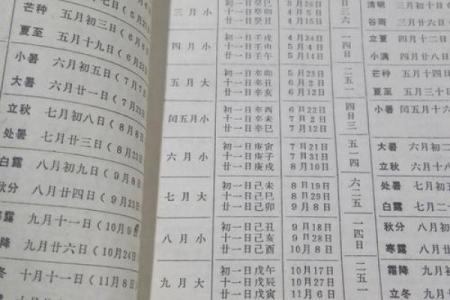 芒种 五月初三日(6
夏至 五月十九日(6月
小暑 六月初五日(7月
大暑 六月廿一日(7月
立秋 七月初八日(8月8
处暑 七月廿三日(8月23
白露 八月初九日(9月8日
秋分 八月廿四日(9月23
寒露 九月十一日(10月
霜降 九月廿六日(10月24
立冬 十月十一日(11月8日
三月小
廿一日癸丑
四月小
初一日壬戌 4月24日
十一日壬申 5月4日
廿一日壬午 5月14日
五月大
初一日辛卯 5月23日
十一日辛丑 6月2日
廿一日辛亥 6月12日
闰五月小
初一日辛酉 6月22日
十一日辛未 7月2日
廿一日辛巳 7月12日
六月小
初一日庚寅 7月21日
十一日庚子 7月31日
廿一日庚戌 8月10日
七月大
初一日己未 8月19日
十一日己巳 8月29日
廿一日己卯 9月8日
八月小
初一日己丑 9月18日
十一日己亥 9月28日
廿一日己酉 10月8日
九月大
初一日戊午 10月17日
十一日戊辰 10月27日
廿一日戊寅 11月6日
三六
一四日
二五一
四日三
五一四
六二五
一四日
二五一
清明 二月
谷雨 三月
立夏 四月十二
小满 四月廿八
芒种 五月十四日
夏至 五月三十日
小暑 闰五月十
大暑
立秋
处暑 七月
白露 七月二
秋分 八月
寒露 八月
霜降
立冬